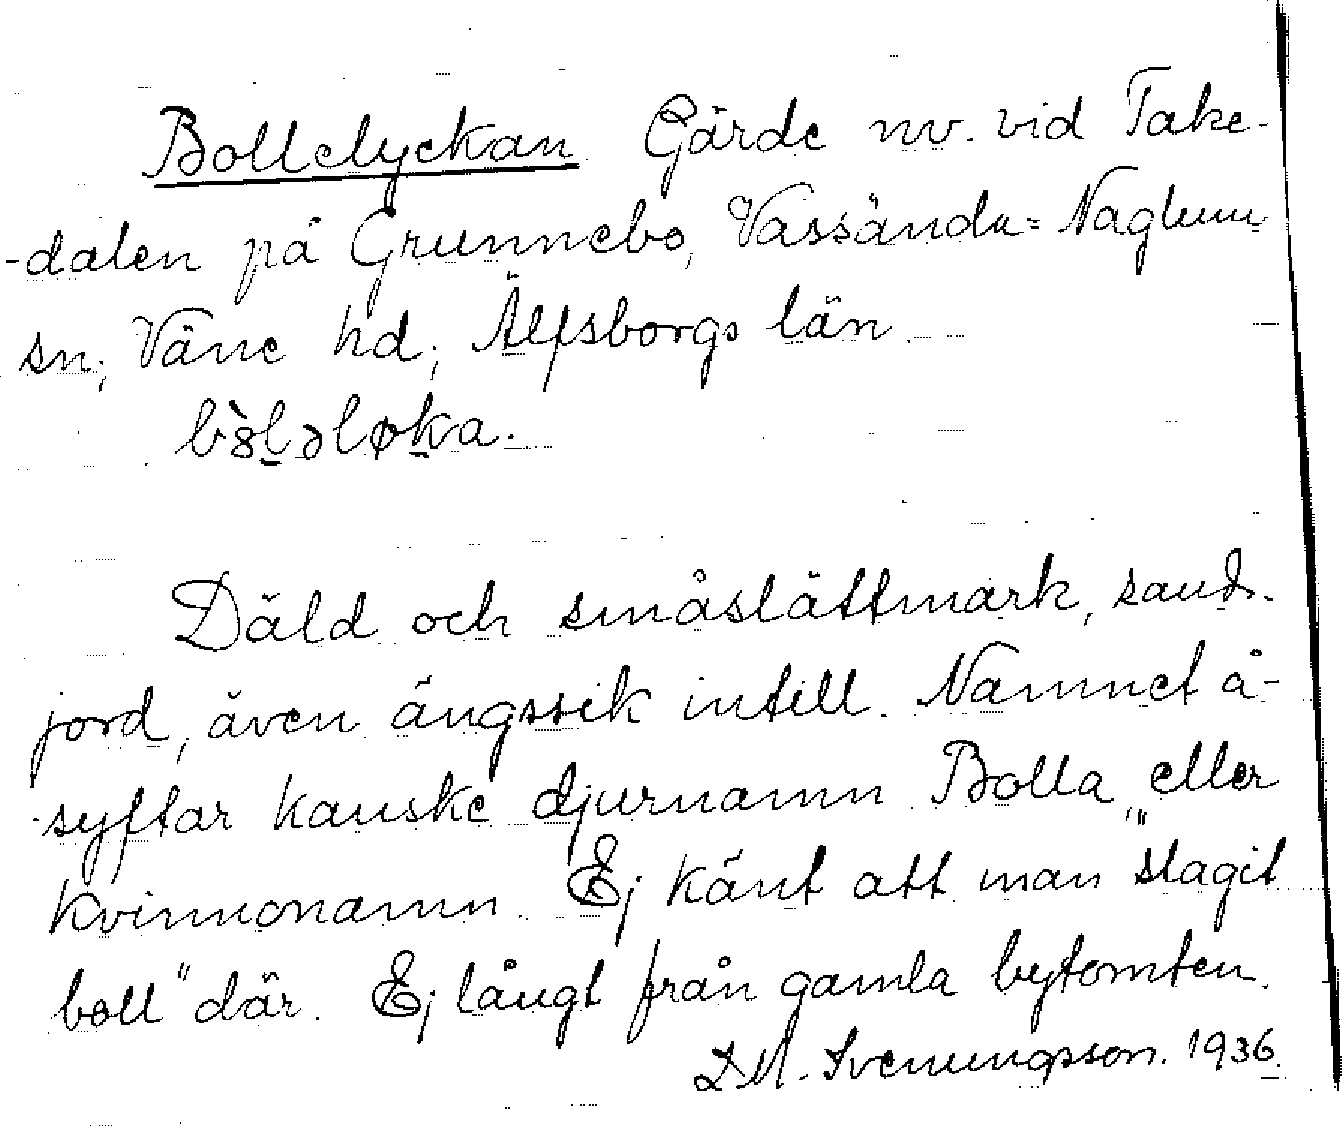 Bollelyckan Gärde nv. vid Take-
-dalen på Grunnebo, Vassända=Naglum
sn; Väne hd; Älfsborgs län
bòl̠əløk̠a.
Däld och småslättmark, sand-
jord, även ängssik intill. Namnet å-
syftar kanske djurnamn Bolla, eller
kvinnonamn. Ej känt att man "slagit
boll" där. Ej långt från gamla bytomten.
D.M. Svenungsson. 1936.